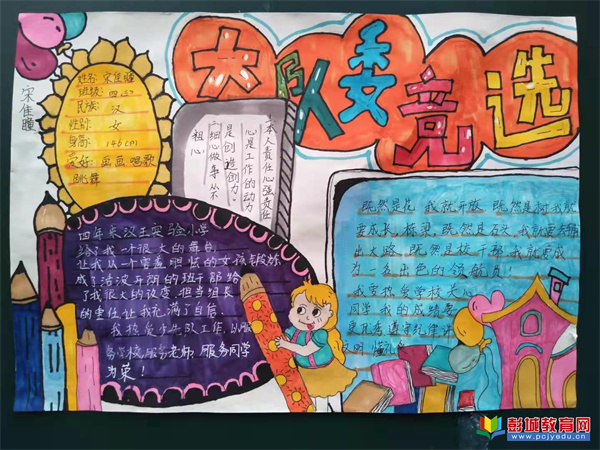 大队委竞选
宋佳曈
姓名:宋佳曈
班级:四.
民族:汉
性别:女
身高:146cm
爱好:画画 唱歌
跳舞
本人责任心强责任
心是工作的动力
是创造力。
细心做事从不
粗心
四年来汉王实验小学
给了我一个很大的舞台,
让我从一个害羞胆怯的女孩锻炼
成了活泼开朗的班干部给
了我很大的改变,担当组长
的重任让我充满了自信。
我热爱少先队工作,以服
务学校,服务老师,服务同学
为荣!
既然是花,我就开放,既然是树,我就
要成长 栋梁,既然是石头,我就要去铺
出大路,既然是校干部,我就要成
为一名出色的领航员!
我热爱学校关心
同学,我的成绩
遵守纪律
懂礼
彭城教育网
www.pcjyedu.com